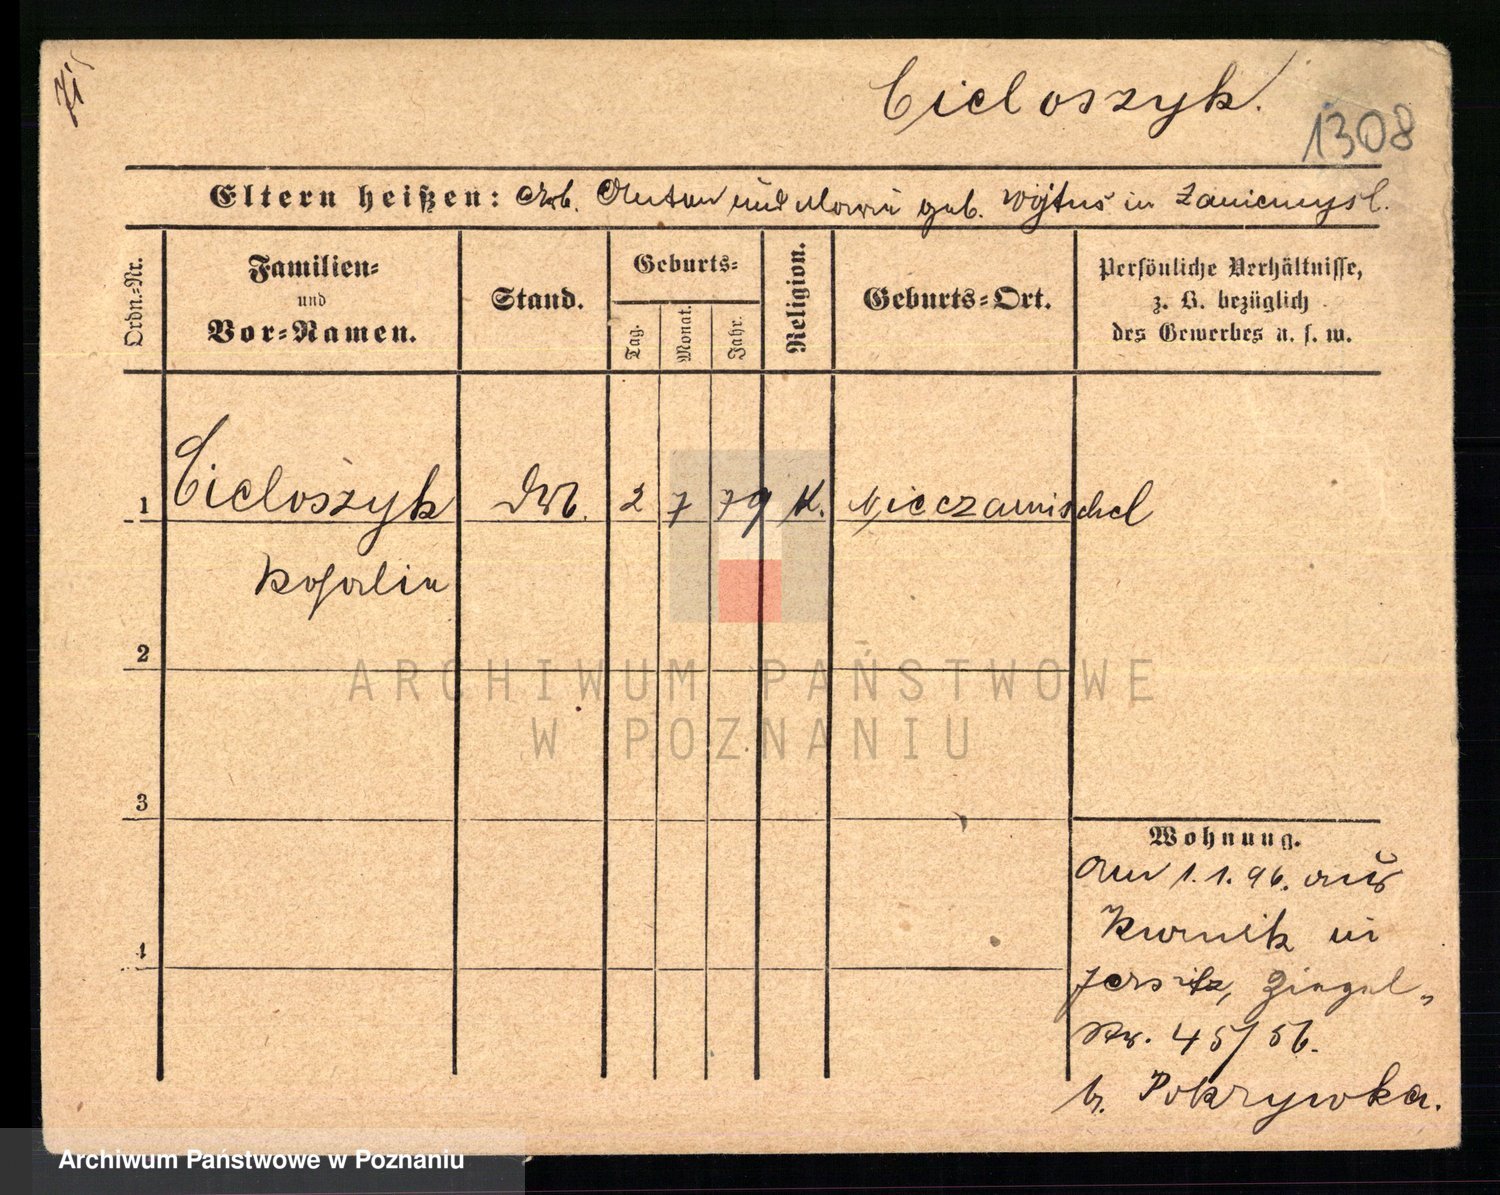 Cieloszyk.
1308
Eltern heißen: Arb. Anton und Maria geb. Wojtus in Zaniemysl.
Ordn.-Nr.
Familien-
und
Vor-Namen.
Stand.
Geburts-
Tag.
Monat.
Jahr.
Religion.
Geburts-Ort.
Persönliche Verhältnisse,
z. B. bezüglich
des Gewerbes u. s. w.
1 Cieloszyk Arb. 2 7 79 K. Nieczamischel
2
3
4
ARCHIWUM PAŃSTWOWE
W POZNANIU
Wohnung.
Am 1.1.96. aus
Kurnik in
Jersitz, Ziegel-
str. 45/56.
b. Pokrywka.
Archiwum Państwowe w Poznaniu